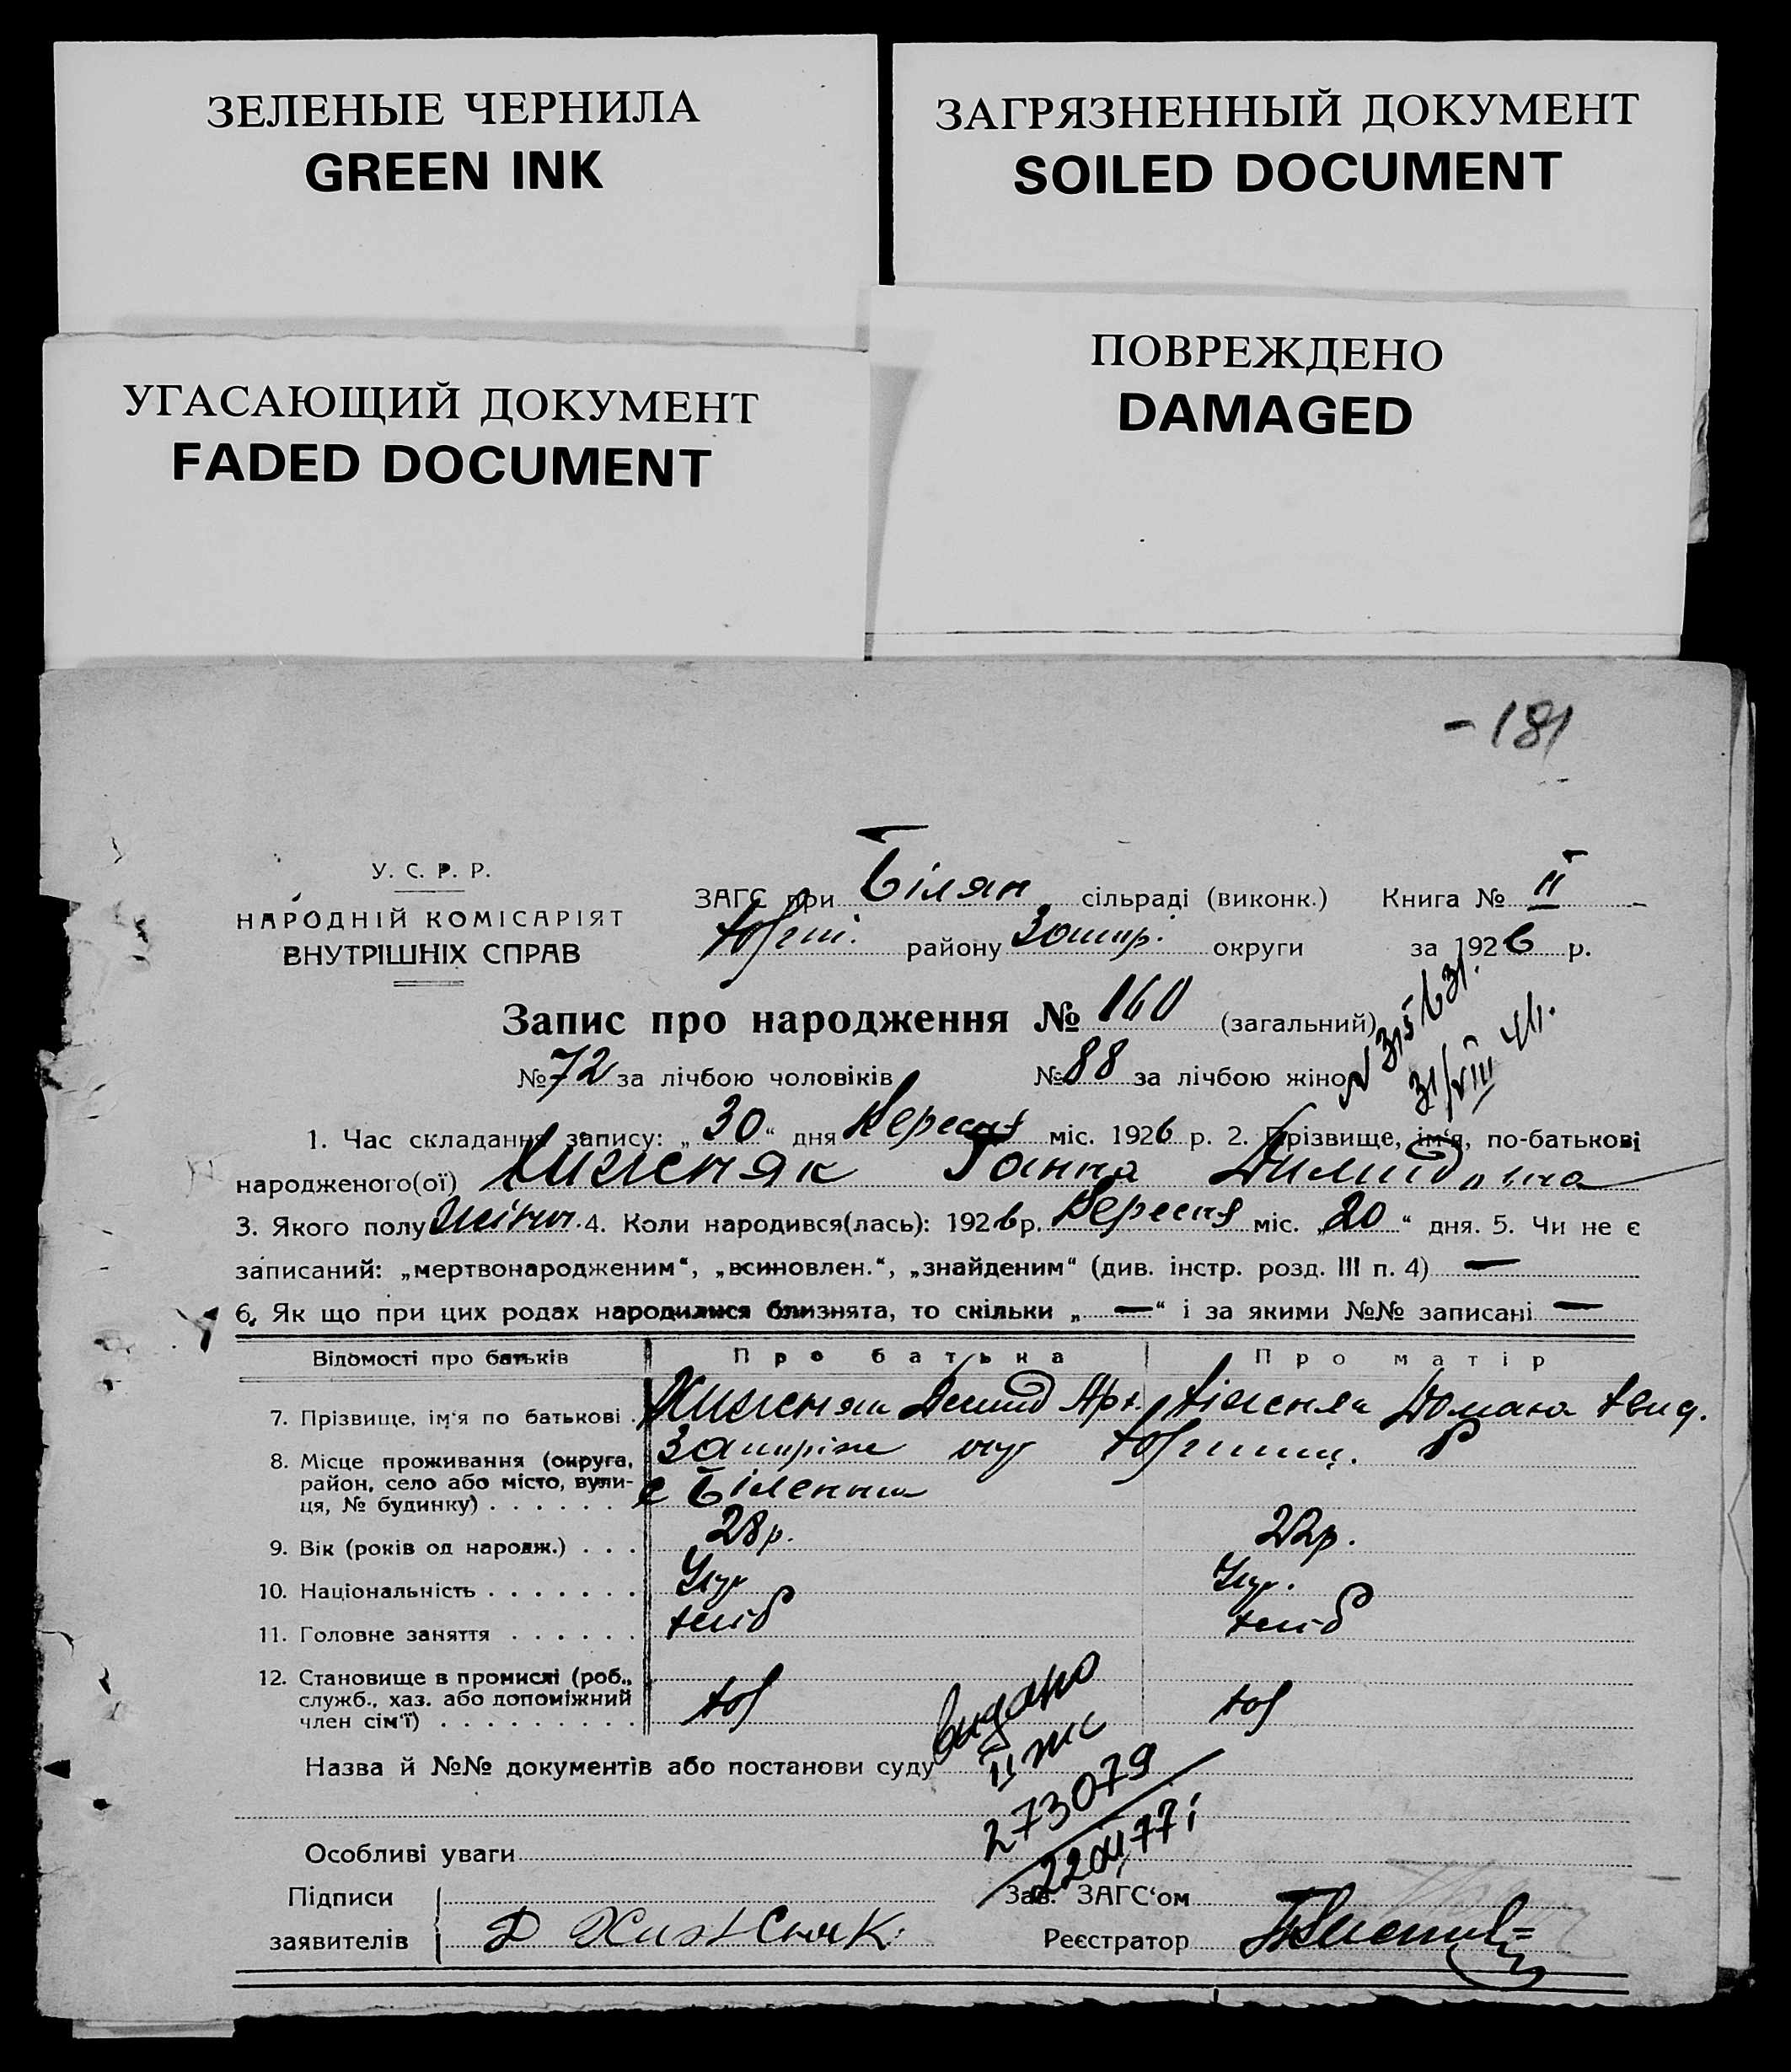 ЗЕЛЕНЫЕ ЧЕРНИЛА
GREEN INK
ЗАГРЯЗНЕННЫЙ ДОКУМЕНТ
SOILED DOCUMENT
УГАСАЮЩИЙ ДОКУМЕНТ
FADED DOCUMENT
ПОВРЕЖДЕНО
DAMAGED
- 181
У. С. Р. Р.
НАРОДНІЙ КОМІСАРІЯТ
ВНУТРІШНІХ СПРАВ
ЗАГС при Білян сільраді (виконк.) Книга № II
району Запор. округи за 1926 р.
Запис про народження № 160 (загальний)
№ 72 за лічбою чоловіків № 88 за лічбою жінок
31/VIII 41.
1. Час складання запису: „30“ дня Вересня міс. 1926 р. 2. Прізвище, ім'я, по-батькові
народженого(ої) Хижсняк Ганна Димидовна
3. Якого полу жіноч. 4. Коли народився(лась): 1926 р. Вересня міс. „20“ дня. 5. Чи не є
записаний: „мертвонародженим“, „всиновлен.“, „знайденим“ (див. інстр. розд. III п. 4) —
6. Як що при цих родах народилися близнята, то скільки „—“ і за якими №№ записані —
Відомості про батьків Про батька Про матір
7. Прізвище, ім'я по батькові . Хижсняк Демид Арх. Домаха
8. Місце проживання (округа, Запоріж окр
район, село або місто, вули- с Біленьке
ця, № будинку) . . . . . .
9. Вік (років од народж.) . . . 28 р. 22 р.
10. Національність . . . . . . . Укр Укр.
11. Головне заняття . . . . . . хліб хліб
12. Становище в промислі (роб.,
служб., хаз. або допоміжний хаз хаз
член сім'ї) . . . . . . . . .
Видано
II жс
273079
Назва й №№ документів або постанови суду
Особливі уваги
Підписи Зав. ЗАГС'ом
заявителів Д Хижсняк. Реєстратор